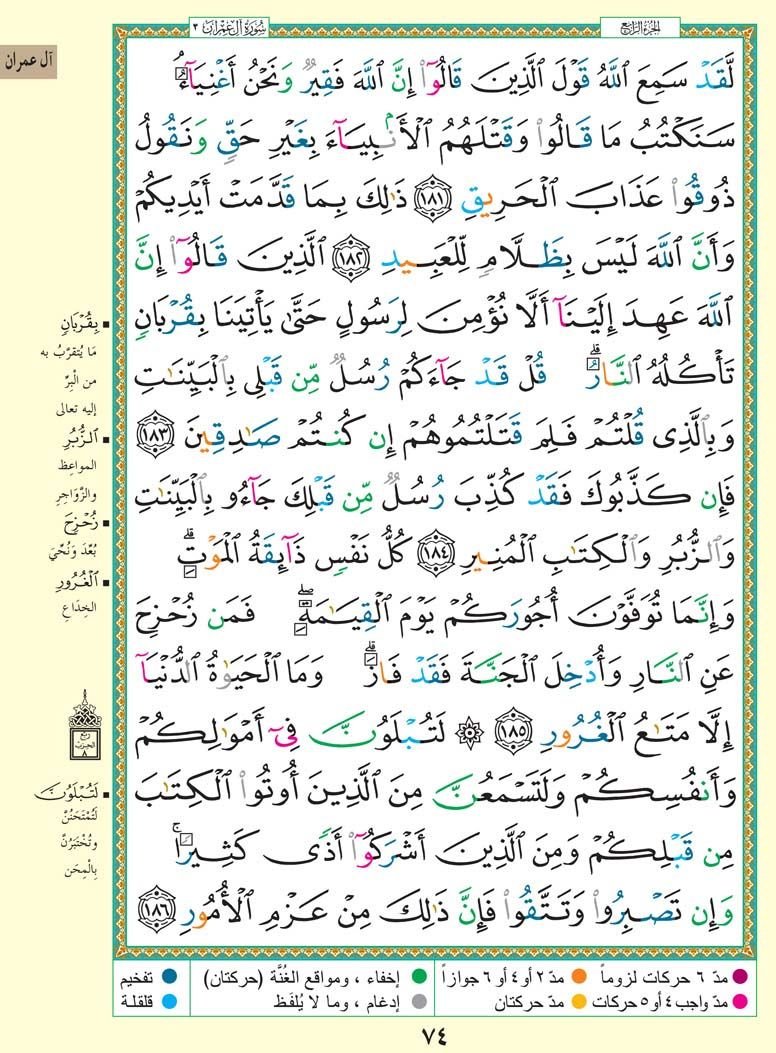 الجزء الرابع
سورة آل عمران ٣
آل عمران
لَّقَدْ سَمِعَ ٱللَّهُ قَوْلَ ٱلَّذِينَ قَالُوٓا۟ إِنَّ ٱللَّهَ فَقِيرٌ وَنَحْنُ أَغْنِيَآءُ ۘ
سَنَكْتُبُ مَا قَالُوا۟ وَقَتْلَهُمُ ٱلْأَنۢبِيَآءَ بِغَيْرِ حَقٍّ وَنَقُولُ
ذُوقُوا۟ عَذَابَ ٱلْحَرِيقِ ١٨١ ذَٰلِكَ بِمَا قَدَّمَتْ أَيْدِيكُمْ
وَأَنَّ ٱللَّهَ لَيْسَ بِظَلَّامٍ لِّلْعَبِيدِ ١٨٢ ٱلَّذِينَ قَالُوٓا۟ إِنَّ
ٱللَّهَ عَهِدَ إِلَيْنَآ أَلَّا نُؤْمِنَ لِرَسُولٍ حَتَّىٰ يَأْتِيَنَا بِقُرْبَانٍ
تَأْكُلُهُ ٱلنَّارُ ۗ قُلْ قَدْ جَآءَكُمْ رُسُلٌ مِّن قَبْلِى بِٱلْبَيِّنَٰتِ
وَبِٱلَّذِى قُلْتُمْ فَلِمَ قَتَلْتُمُوهُمْ إِن كُنتُمْ صَٰدِقِينَ ١٨٣
فَإِن كَذَّبُوكَ فَقَدْ كُذِّبَ رُسُلٌ مِّن قَبْلِكَ جَآءُو بِٱلْبَيِّنَٰتِ
وَٱلزُّبُرِ وَٱلْكِتَٰبِ ٱلْمُنِيرِ ١٨٤ كُلُّ نَفْسٍ ذَآئِقَةُ ٱلْمَوْتِ ۗ
وَإِنَّمَا تُوَفَّوْنَ أُجُورَكُمْ يَوْمَ ٱلْقِيَٰمَةِ ۖ فَمَن زُحْزِحَ
عَنِ ٱلنَّارِ وَأُدْخِلَ ٱلْجَنَّةَ فَقَدْ فَازَ ۗ وَمَا ٱلْحَيَوٰةُ ٱلدُّنْيَآ
إِلَّا مَتَٰعُ ٱلْغُرُورِ ١٨٥ ۞ لَتُبْلَوُنَّ فِىٓ أَمْوَٰلِكُمْ
وَأَنفُسِكُمْ وَلَتَسْمَعُنَّ مِنَ ٱلَّذِينَ أُوتُوا۟ ٱلْكِتَٰبَ
مِن قَبْلِكُمْ وَمِنَ ٱلَّذِينَ أَشْرَكُوٓا۟ أَذًى كَثِيرًا ۚ
وَإِن تَصْبِرُوا۟ وَتَتَّقُوا۟ فَإِنَّ ذَٰلِكَ مِنْ عَزْمِ ٱلْأُمُورِ ١٨٦
بِقُرْبَانٍ
مَا يُتقرَّبُ به
من الْبِرِّ
إليه تعالى
الزُّبُرِ
المواعظ
والزَّواجِرِ
زُحْزِحَ
بُعِّدَ وَنُحِّيَ
الْغُرُورِ
الخِدَاعِ
ربع
الحزب
٨
لَتُبْلَوُنَّ
لَتُمْتَحَنُنَّ
وتُخْتَبَرُنَّ
بِالْمِحَن
مدّ ٦ حركات لزوماً
مدّ ٢ أو ٤ أو ٦ جوازاً
إخفاء ، ومواقع الغُنَّة (حركتان)
تفخيم
مدّ واجب ٤ أو ٥ حركات
مدّ حركتان
إدغام ، وما لا يُلفَظ
قلقلة
٧٤